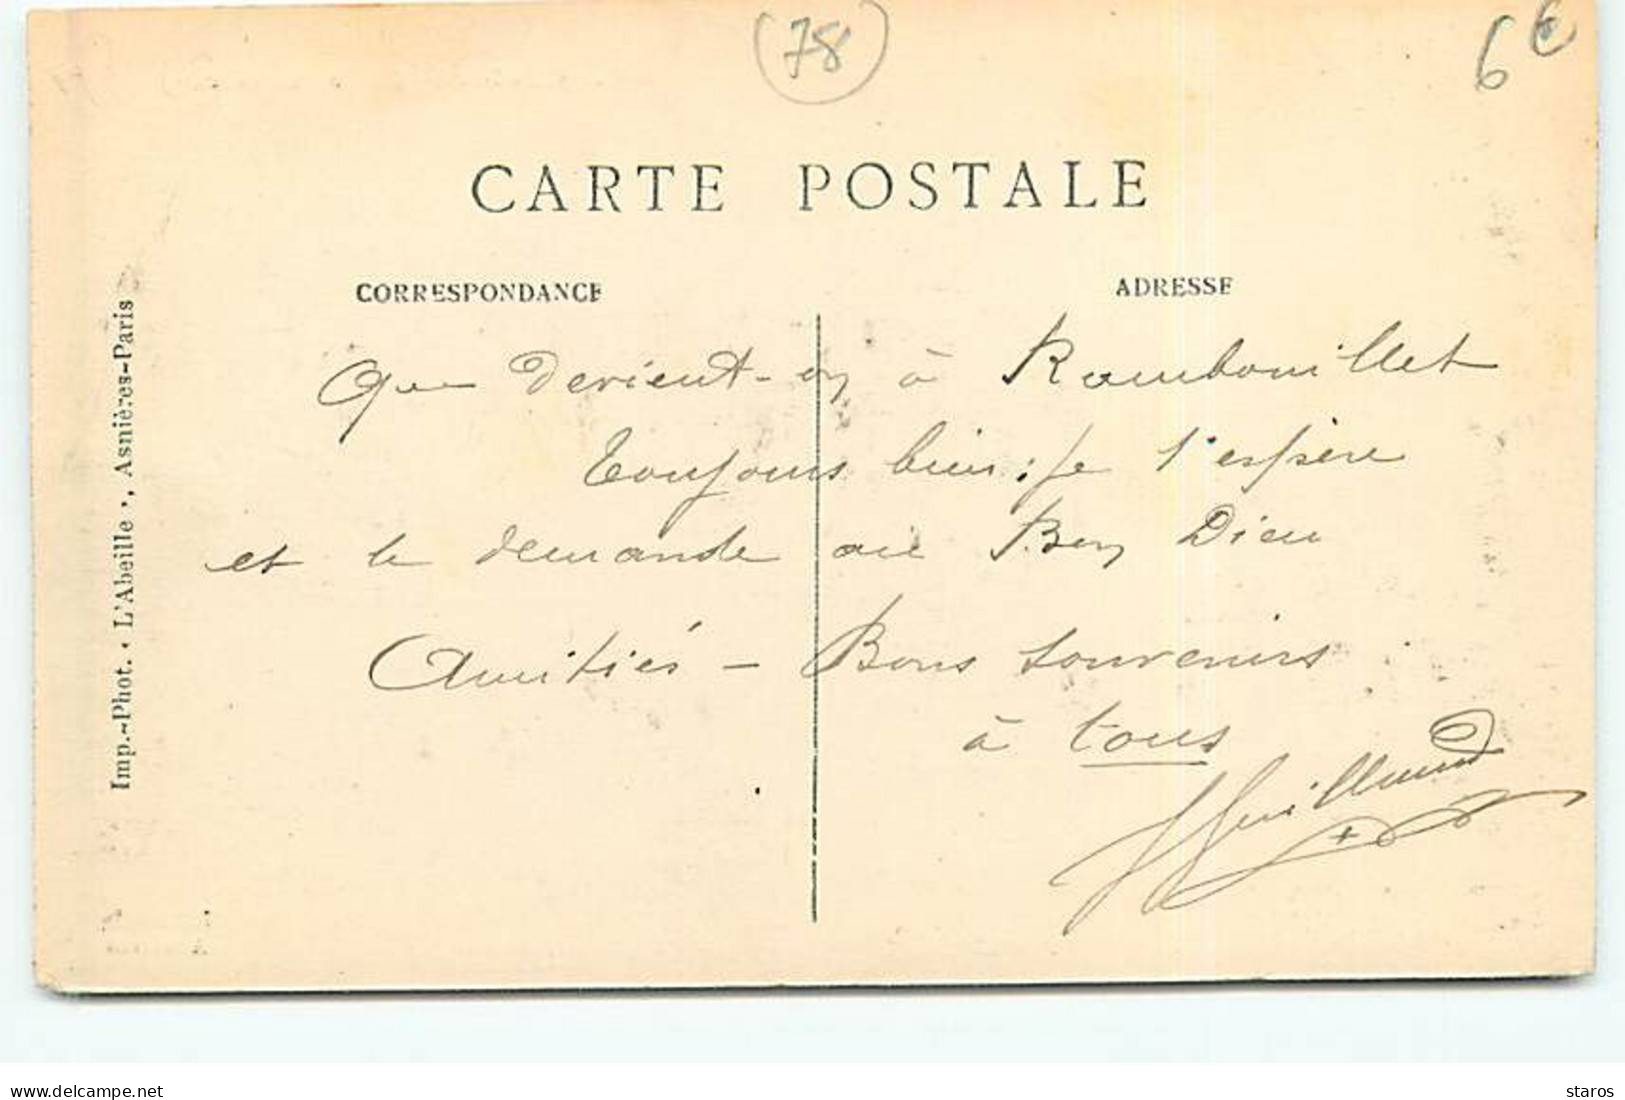 (78)
6€
CARTE POSTALE
CORRESPONDANCE
ADRESSE
Imp.-Phot. « L'Abeille », Asnières-Paris
Que devient-on à Rambouillet
Toujours bien ; je l'espère
et le demande au Bon Dieu
Amitiés – Bons souvenirs
à tous
delcampe.net
staros